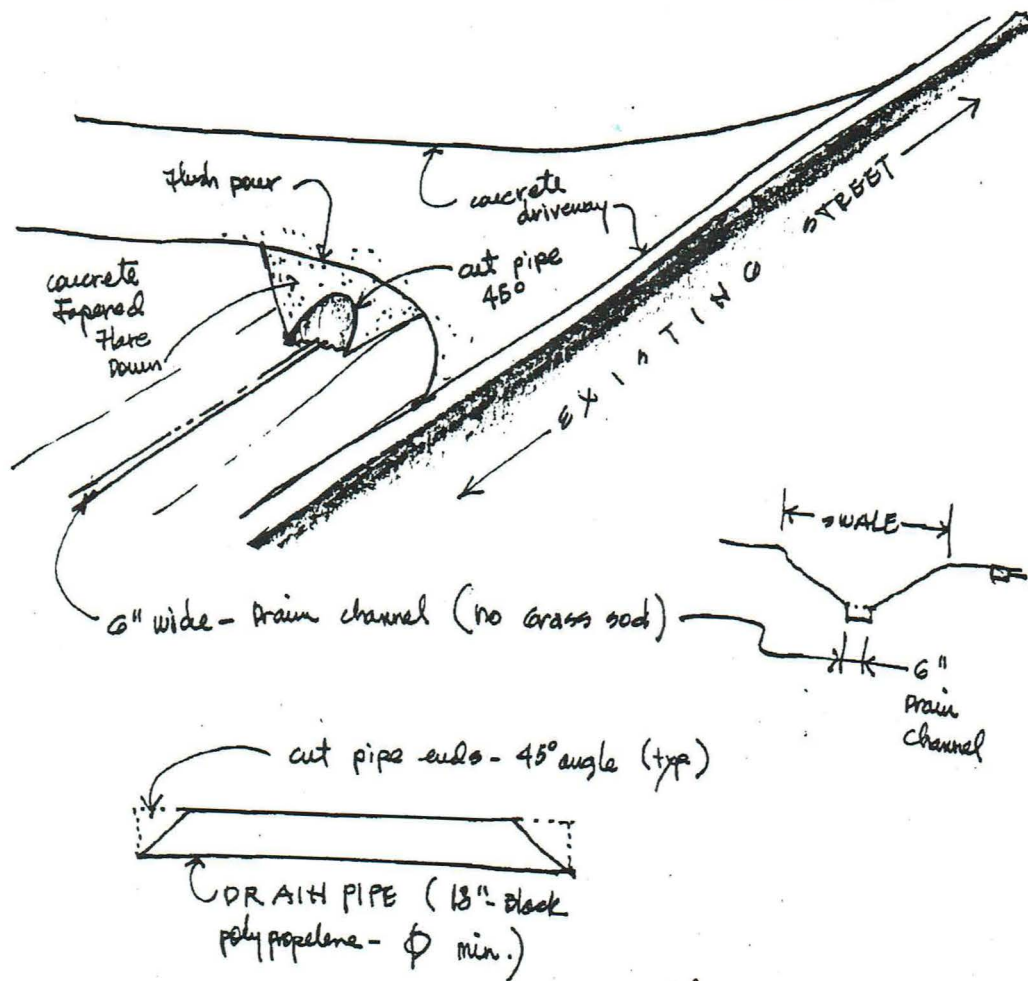 Flush pour
concrete
driveway
cut pipe
45°
concrete
Tapered
Flare
Down
EXISTING STREET
SWALE
6" wide - Drain channel (no Grass sod)
6"
Drain
channel
cut pipe ends - 45° angle (typ)
DRAIN PIPE (18"- Black
polypropelene - ϕ min.)